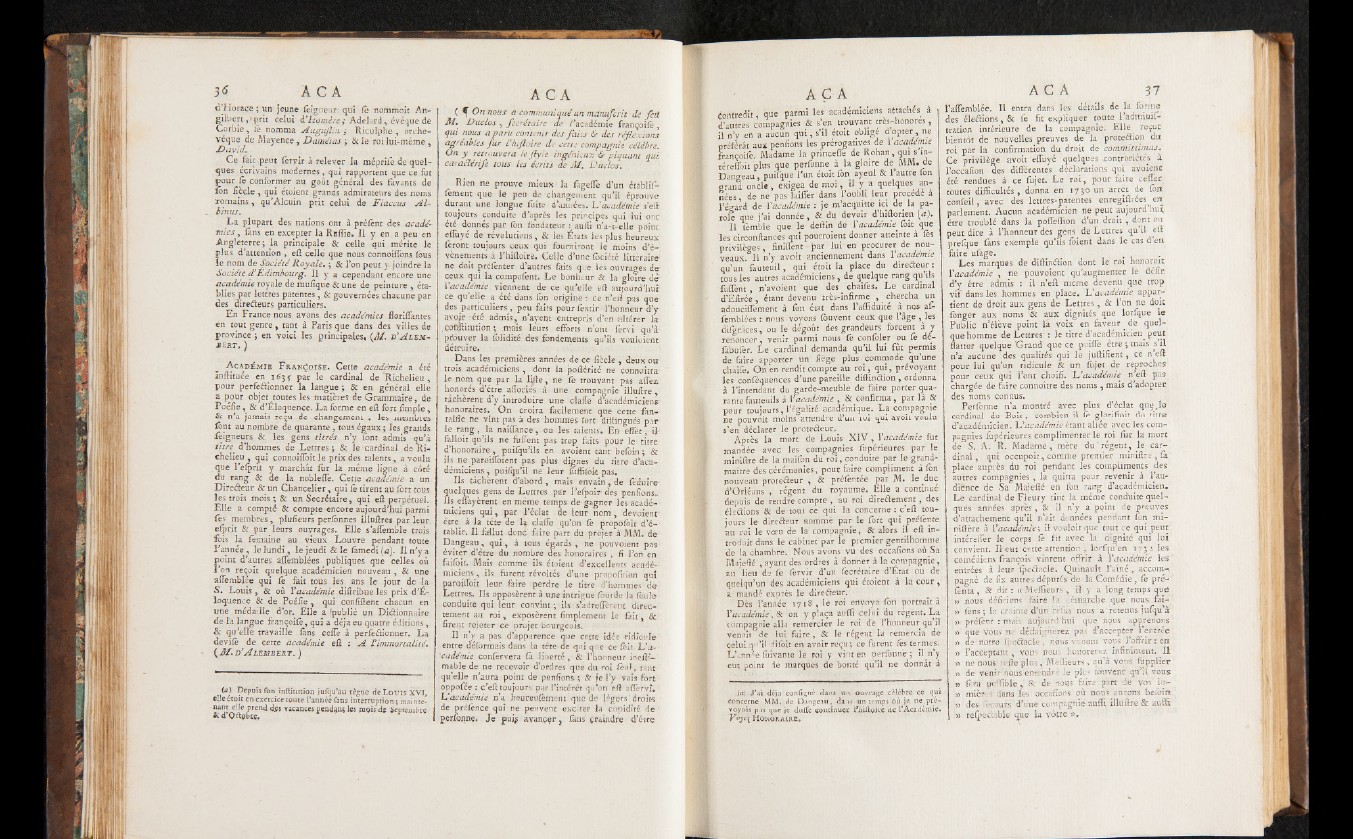 36 A C A
d'Horace ; un jeune seigneur qui se nommoit An-
gilbert, prit celui d'Homère ; Adelard, évêque de
Corbie, se nomma Augustin ; Riculphe, arche-
vêque de Mayence, Damétas ; & le roi lui-même,
David.
Ce fait peut servir à relever la méprise de quel-
ques écrivains modernes, qui rapportent que ce fut
pour se conformer au goût général des savants de
son siècle, qui étoient grands admirateurs des noms
romains, qu'Alcuin prit celui de Flaccus Al-
binus.
La plupart des nations ont à présent des acadé-
mies, sans en excepter la Russie. Il y en a peu en
Angleterre ; la principale & celle qui mérite le
plus d'attention, est celle que nous connoissons sous
le nom de Société Royale. ; & l'on peut y joindre la
Société d'Edimbourg. Il y a cependant encore une
académie royale de musique & une de peinture, éta-
blies par lettres patentes, & gouvernées chacune par
des directeurs particuliers.
En France nous avons des académies florissantes
en tout genre, tant à Paris que dans des villes de
province ; en voici les principales. (M. D'ALEM-
BERT. )
ACADÉMIE FRANÇOISE. Cette académie a été
instituée en 1635 par le cardinal de Richelieu,
pour perfectionner la langue ; & en général elle
a pour objet toutes les matières de Grammaire, de
Poésie, & d'Éloquence. La forme en est fort simple,
& n'a jamais reçu de changement : les membres
sont au nombre de quarante, tous égaux ; les grands
seigneurs & les gens titrés n'y sont admis qu'à
titre d'hommes de Lettres ; & le cardinal de Ri-
chelieu, qui connoissoit le prix des talents, a voulu
que l'esprit y marchât sur la même ligne à côté
du rang & de la noblesse. Cette académie a un
Directeur & un Chancelier, qui se tirent au sort tous
les trois mois ; & un Secrétaire, qui est perpétuel.
Elle a compté & compte encore aujourd'hui parmi
ses membres, plusieurs personnes illustres par leur
esprit & par leurs ouvrages. Elle s'assemble trois
fois la semaine au vieux Louvre pendant toute
l'année, le lundi, le jeudi & le samedi (a). Il n'y a
point d'autres assemblées publiques que celles où
l'on reçoit quelque académicien nouveau, & une
assemblée qui se fait tous les ans le jour de la
S. Louis, & où l'académie distribue les prix d'É-
loquence & de Poésie, qui consistent chacun en
une médaille d'or. Elle a publié un Dictionnaire
de la langue françoise, qui a déja eu quatre éditions,
& qu'elle travaille sans cesse à perfectionner. La
devise de cette académie est : A l'immortalité.
( M. D'ALEMBERT. )
(a) Depuis son institution jusqu'au règne de LOUIS XVI,
elle étoit en exercice toute l'année sans interruption ; mainte-
nant elle prend des vacances pendant les mois de Septembre
& d'Octobre.
A C A
( ¶ On nous a communiqué un manuscrit de feu
M. Duclos, secrétaire de l'académie françoise,
qui nous a paru contenir des faits & des réflexions
agréables sur l'histoire de cette compagnie célèbre.
On y retrouvera le style ingénieux & piquant qui
caractérise tous les écrits de M. Duclos.
Rien ne prouve mieux la sagesse d'un établis-
sement que le peu de changement qu'il éprouve
durant une longue suite d'années. L'académie s'est
toujours conduite d'après les principes qui lui ont
été donnés par son fondateur : aussi n'a-t-elle point
essuyé de révolutions, & les États les plus heureux
seront toujours ceux qui fourniront le moins d'é-
vènements à l'histoire. Celle d'une société littéraire
ne doit présenter d'autres faits que les ouvrages de
ceux qui la composent. Le bonheur & la gloire de
l'académie viennent de ce qu'elle est aujourd'hui
ce qu'elle a été dans son origine : ce n'est pas que
des particuliers, peu faits pour sentir l'honneur d'y
avoir été admis, n'ayent entrepris d'en altérer la
constitution ; mais leurs efforts n'ont servi qu'à
prouver la solidité des fondements qu'ils vouloient
détruire.
Dans les premières années de ce siècle, deux ou
trois académiciens, dont la postérité ne connoîtra
le nom que par la liste, ne se trouvant pas assez
honorés d'être associés à une compagnie illustre,
tâchèrent d'y introduire une classe d'académiciens
honoraires. On croira facilement que cette fan-
taisie ne vint pas à des hommes fort distingués par
le rang, la naissance, ou les talents. En effet, il
falloit qu'ils ne fussent pas trop faits pour le titre
d'honoraire, puisqu'ils en avoient tant besoin ; &
ils ne paroissoient pas plus dignes du titre d'aca-
démiciens, puisqu'il ne leur suffisoit pas.
Ils tâchèrent d'abord, mais envain, de séduire
quelques gens de Lettres par l'espoir des pensions.
Ils essayèrent en même temps de gagner les acadé-
miciens qui, par l'éclat de leur nom, devoient
être à la tête de la classe qu'on se proposoit d'é-
tablir. Il fallut donc faire part du projet à MM. de
Dangeau, qui, à tous égards, ne pouvoient pas
éviter d'être du nombre des honoraires, si l'on en
faisoit. Mais comme ils étoient d'excellents acadé-
miciens, ils furent révoltés d'une proposition qui
paroissoit leur faire perdre le titre d'hommes de
Lettres. Ils opposèrent à une intrigue sourde la seule
conduite qui leur convînt ; ils s'adressèrent direc-
tement au roi, exposèrent simplement le fait, &
firent rejeter ce projet bourgeois.
Il n'y a pas d'apparence que cette idée ridicule
entre désormais dans la tête de qui que ce soit. L'a-
cadémie conservera sa liberté, & l'honneur inesti-
mable de ne recevoir d'ordres que du roi seul, tant
qu'elle n'aura point de pensions ; & je l'y vois fort
opposée : c'est toujours par l'intérêt qu'on est asservi.
L'académie n'a heureusement que de légers droits
de présence qui ne peuvent exciter la cupidité de
personne. Je puis avancer, sans craindre d'être
A C A
contredit, que parmi les académiciens attachés à
d'autres compagnies & s'en trouvant très-honorés,
il n'y en a aucun qui, s'il étoit obligé d'opter, ne
préférât aux pensions les prérogatives de l'académie
françoise. Madame la princesse de Rohan, qui s'in-
téressoit plus que personne à la gloire de MM. de
Dangeau, puisque l'un étoit son ayeul & l'autre son
grand oncle, exigea de moi, il y a quelques an-
nées, de ne pas laisser dans l'oubli leur procédé à
l'égard de l'académie : je m'acquitte ici de la pa-
role que j'ai donnée, & du devoir d'historien (a).
Il semble que le destin de l'académie soit que
les circonstances qui pourroient donner atteinte à ses
privilèges, finissent par lui en procurer de nou-
veaux. Il n'y avoit anciennement dans l'académie
qu'un fauteuil, qui étoit la place du directeur :
tous les autres académiciens, de quelque rang qu'ils
fussent, n'avoient que des chaises. Le cardinal
d'Estrée, étant devenu très-infirme, chercha un
adoucissement à son état dans l'assiduité à nos as-
semblées : nous voyons souvent ceux que l'âge, les
disgrâces, ou le dégoût des grandeurs forcent à y
renoncer, venir parmi nous se consoler ou se dé-
sabuser. Le cardinal demanda qu'il lui fût permis
de faire apporter un siège plus commode qu'une
chaise. On en rendit compte au roi, qui, prévoyant
les conséquences d'une pareille distinction, ordonna
à l'intendant du garde-meuble de faire porter qua-
rante fauteuils à l'académie, & confirma, par là &
pour toujours, l'égalité académique. La compagnie
ne pouvoit moins attendre d'un roi qui avoit voulu
s'en déclarer le protecteur.
Après la mort de Louis XIV, l'académie fut
mandée avec les compagnies supérieures par le
ministre de la maison du roi, conduite par le grand-
maître des cérémonies, pour faire compliment à son
nouveau protecteur, & présentée par M. le duc
d'Orléans, régent du royaume. Elle a continué
depuis de rendre compte, au roi directement, des
élections & de tout ce qui la concerne : c'est tou-
jours le directeur nommé par le sort qui présente
au roi le vœu de la compagnie, & alors il est in-
troduit dans le cabinet par le premier gentilhomme
de la chambre. Nous avons vu des occasions où Sa
Majesté, ayant des ordres à donner à la compagnie,
au lieu de se servir d'un secrétaire d'État ou de
quelqu'un des académiciens qui étoient à la cour,
a mandé exprès le directeur.
Dès l'année 1718, le roi envoya son portrait à
l'académie, & on y plaça aussi celui du régent. La
compagnie alla remercier le roi de l'honneur qu'il
venoit de lui faire, & le régent la remercia de
celui qu'il disoit en avoir reçu ; ce furent ses termes.
L'année suivante le roi y vint en personne ; il n'y
eut point de marques de bonté qu'il ne donnât à
(a) J'ai déja consigné dans un ouvrage célèbre ce qui
concerne MM. de Dangeau, dans un temps où je ne pré-
voyois pas que je dusse continuer l'histoire de l'Académie.
Voyez HONORAIRE.
A C A 37
l'assemblée. Il entra dans les détails de la forme
des élections, & se fit expliquer toute l'administ-
tration intérieure de la compagnie. Elle reçut
bientôt de nouvelles preuves de la protection du
roi par la confirmation du droit de committimus.
Ce privilège avoit essuyé quelques contrariétés à
l'occasion des différentes déclarations qui avoient
été rendues à ce sujet. Le roi, pour faire cesser
toutes difficultés, donna en 1730 un arrêt de son
conseil, avec des lettres-patentes enregistrées en
parlement. Aucun académicien ne peut aujourd'hui
être troublé dans la possession d'un droit, dont on
peut dire à l'honneur des gens de Lettres qu'il est
presque sans exemple qu'ils soient dans le cas d'en
faire usage.
Les marques de distinction dont le roi honoroit
l'académie, ne pouvoient qu'augmenter le désir
d'y être admis : il n'est même devenu que trop
vif dans les hommes en place. L'académie appar-
tient de droit aux gens de Lettres, & l'on ne doit
songer aux noms & aux dignités que lorsque le
Public n'élève point la voix en faveur de quel-
que homme de Lettres : le titre d'académicien peut
flatter quelque Grand que ce puisse être ; mais s'il
n'a aucune des qualités qui le justifient, ce n'est
pour lui qu'un ridicule & un sujet de reproches
pour ceux qui l'ont choisi. L'académie n'est pas
chargée de faire connoître des noms, mais d'adopter
des noms connus.
Personne n'a montré avec plus d'éclat que le
cardinal du Bois, combien il se glorifioit du titre
d'académicien. L'académie étant allée avec les com-
pagnies supérieures complimenter le roi sur la mort
de S. A. R. Madame, mère du régent, le car-
dinal, qui occupoit, comme premier ministre, sa
place auprès du roi pendant les compliments des
autres compagnies, la quitta pour revenir à l'au-
dience de Sa Majesté en son rang d'académicien.
Le cardinal de Fleury tint la même conduite quel-
ques années après, & il n'y a point de preuves
d'attachement qu'il n'ait données pendant son mi-
nistère à l'académie ; il vouloit que tout ce qui peut
intéresser le corps se fît avec la dignité qui lui
convient. Il eut cette attention, lorsqu'en 1732 les
comédiens françois vinrent offrir à l'académie les
entrées à leur spectacle. Quinault l'aîné, accom-
pagné de six autres députés de la Comédie, se pré-
senta, & dit : « Messieurs, il y a long temps que
» nous désirions faire la démarche que nous fai-
» sons ; la crainte d'un refus nous a retenus jusqu'à
» présent : mais aujourd'hui que nous apprenons
» que vous ne dédaignerez pas d'accepter l'entrée
» de notre spectacle, nous venons vous l'offrir : en
» l'acceptant, vous nous honorerez infiniment. Il
» ne nous reste plus, Messieurs, qu'à vous supplier
» de venir nous entendre le plus souvent qu'il vous
» sera possible, & de nous faire part de vos lu-
» mières dans les occasions où nous aurons besoin
» des secours d'une compagnie aussi illustre & aussi
» respectable que la vôtre ».